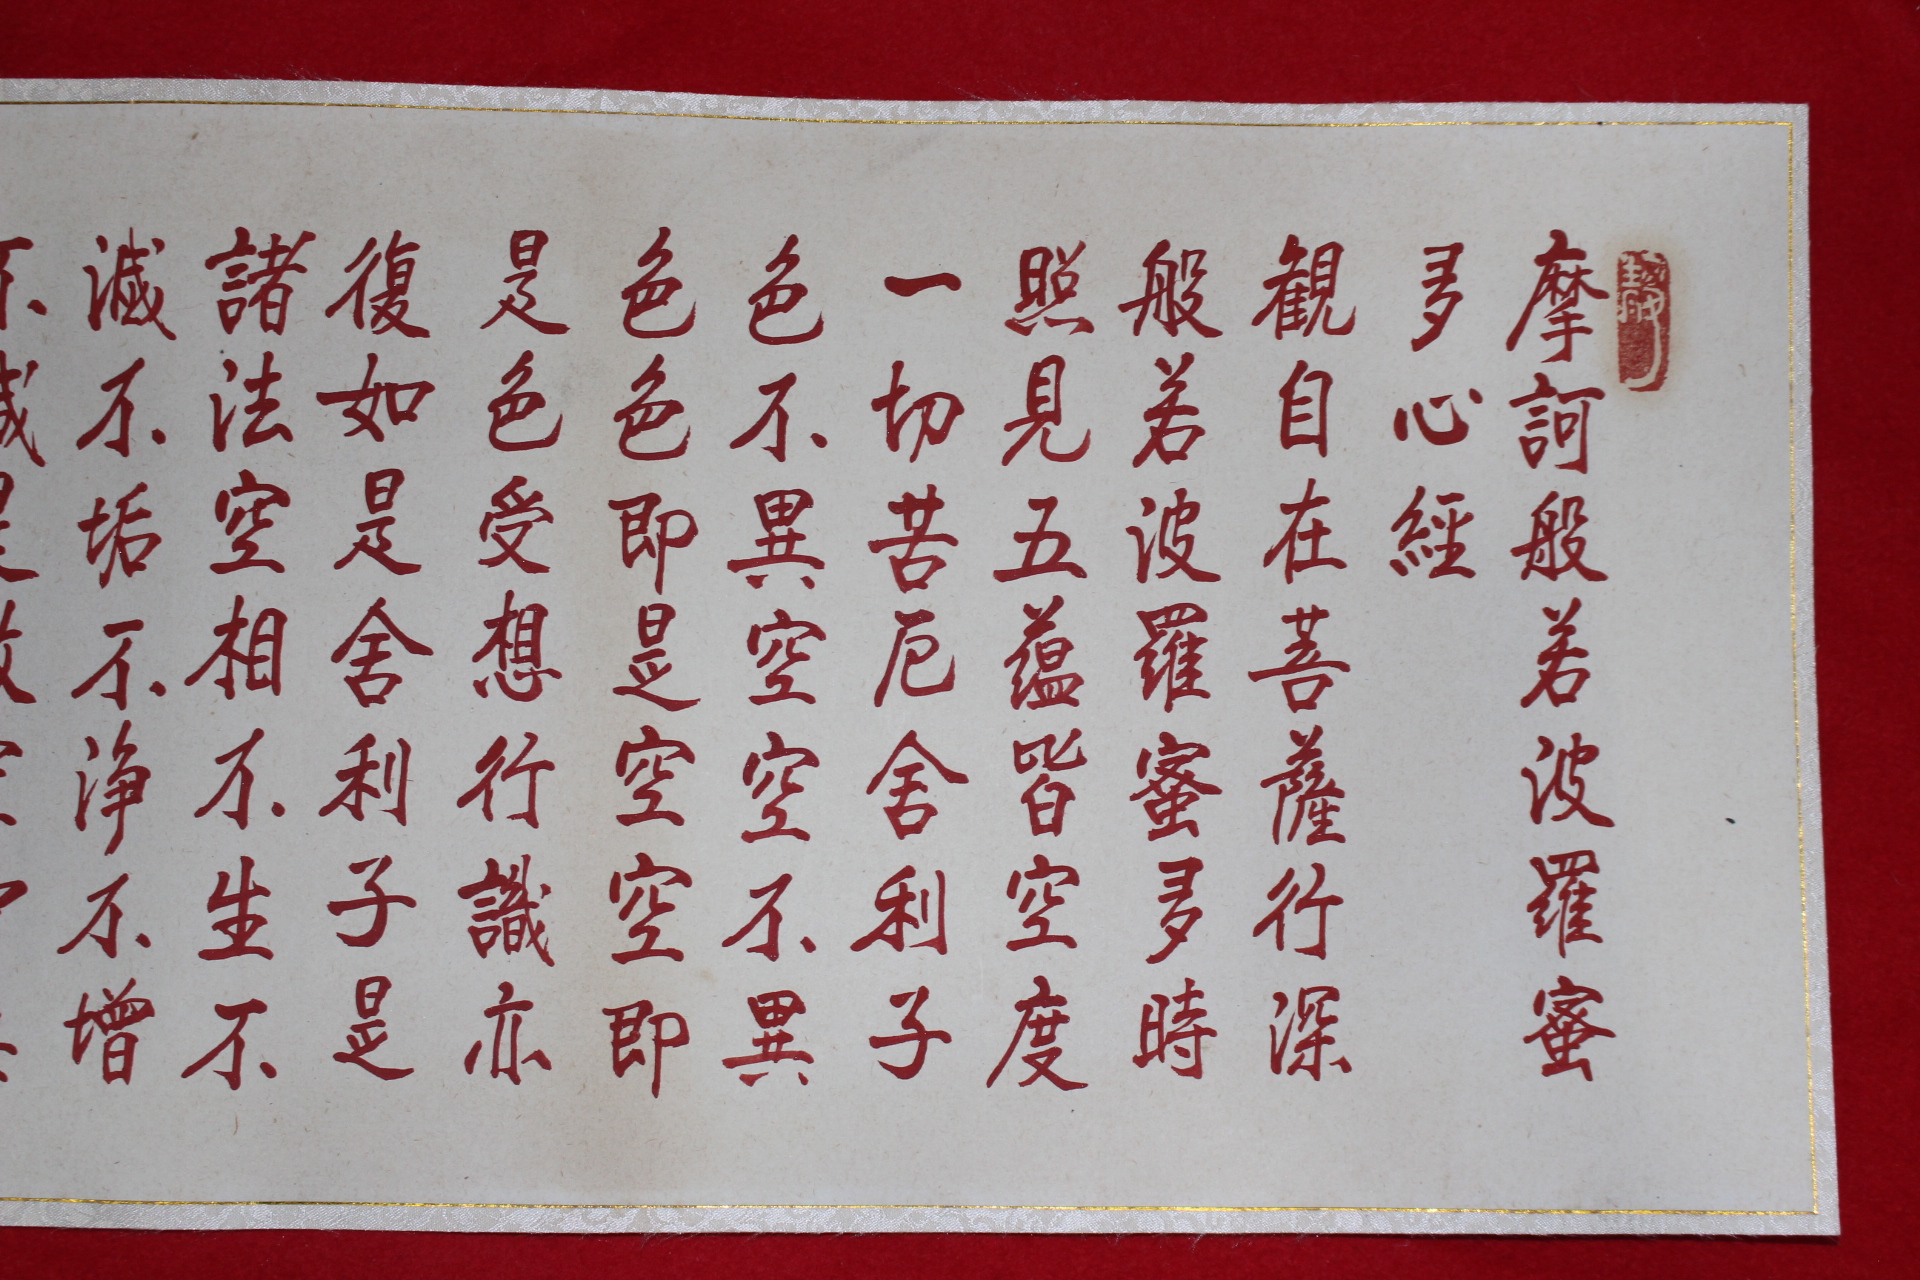 摩訶般若波羅蜜
多心經
観自在菩薩行深
般若波羅蜜多時
照見五蘊皆空度
一切苦厄舍利子
色不異空空不異
色色即是空空即
是色受想行識亦
復如是舍利子是
諸法空相不生不
滅不垢不淨不增
不減是故空